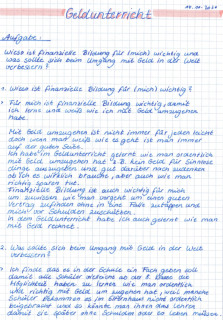 Geldunterricht
Aufgabe:
Wieso ist finanzielle Bildung für (mich) wichtig und
was sollte sich beim Umgang mit Geld in der Welt
verbessern?
1. Wieso ist finanzielle Bildung für (mich) wichtig?
• Für mich ist finanzielle Bildung wichtig, damit
ich lerne und weiß wie ich mit Geld umzugehen
habe.
Mit Geld umzugehen ist nicht immer für jeden leicht
doch wenn man weiß wie es geht ist man immer
auf der guten Seite.
Ich habe im Geldunterricht gelernt wie man ordentlich
mit Geld umgehen hat z.B. kein Geld für sinnlose
Dinge auszugeben und gut darüber nach zu denken
ob ich es wirklich brauche, aber auch wie man
richtig spart tut.
Finanzielle Bildung ist auch wichtig für mich
um zu wissen wie man vorgeht um einen guten
Vertrag zu finden ohne in eine Falle zu folgen und
mich vor Schulden zu schützen.
In dem Geldunterricht habe ich auch gelernt wie man
mit Geld rechnet.
2. Was sollte sich beim Umgang mit Geld in der Welt
verbessern?
Ich finde das es in der Schule ein Fach geben soll
damit alle Schüler die
haben zu lernen wie man ordentlich
und richtig mit Geld umzugehen hat, weil manche
Schüler
beigebracht und so könnte man ihnen das lernen
damit sie später ohne Schulden oder so leben müssen